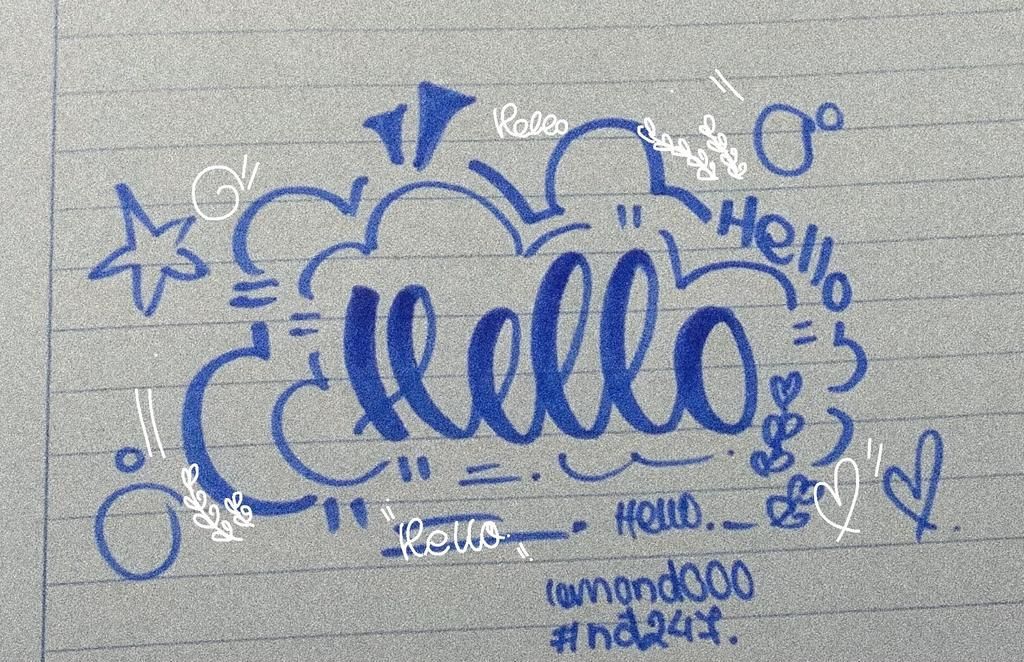 Hello
Hello
Hello
"Hello."
Hello.
iamand000
#nd247.